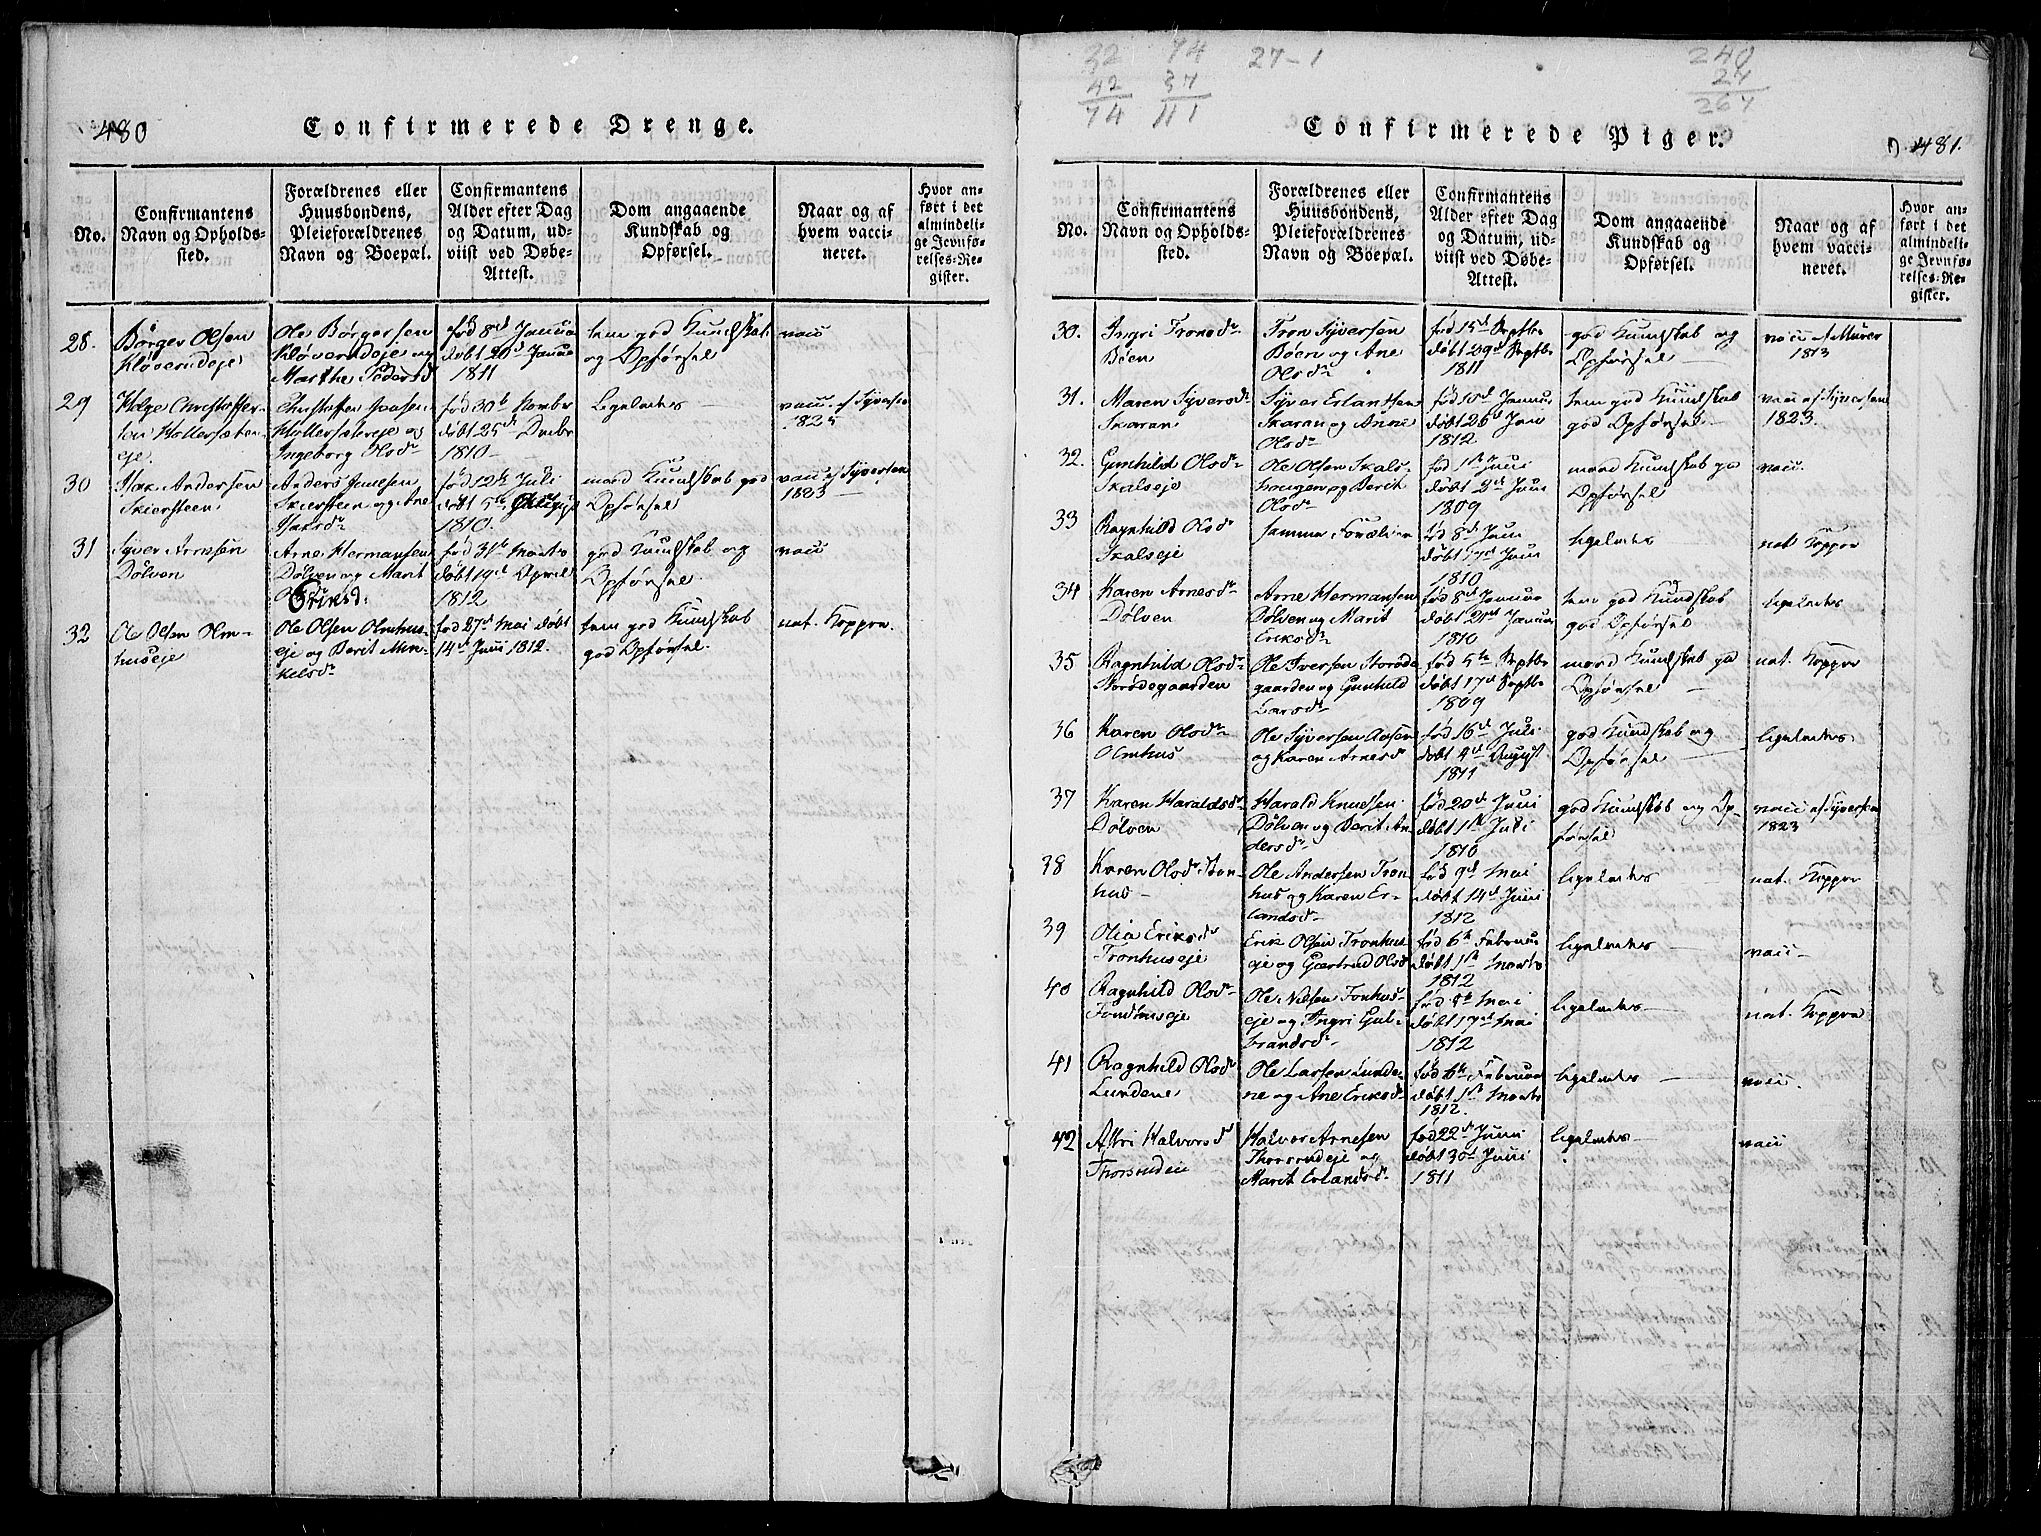 480
Confirmerede Drenge.
No.
Confirmantens
Navn og Opholds-
sted.
Forældrenes eller
Huusbondens,
Pleieforældrenes
Navn og Boepæl.
Confirmantens
Alder efter Dag
og Datum, ud-
viist ved Døbe-
Attest.
Dom angaaende
Kundskab og
Opførsel.
Naar og af
hvem vacci-
neret.
Hvor an-
ført i det
almindeli-
ge Jevnfø-
relses-Re-
gister.
28.
Børger Olsen
Kløverudeje
Ole Børgersen
Kløverudeje og
Marthe Pedersd
fød 8d Janua
døbt 20d Janua
1811
tem god Kundskab
og Opførsel
vacc
29
Helge Christoffer-
sen
eje
Christoffer
og
Ingeborg Olsdr
fød 30te Novbr
døbt 25d Decbr
1810
ligeledes
vacc. af Syversen
1825
30
Andersen
Skiersteen
Anders
Skiersteen og Ane
fød 12te Juli
døbt 5te
1810.
maad Kundskab god
Opførsel
vacc af Syversen
1823
31
Syver Arnesen
Dølven
Arne Hermansen
Dølven og Marit
Eriksd:
fød 31te Marts
døbt 19d April
1812
god Kundskab og
Opførsel.
vacc
32
Ole Olsen Olm-
huseje
Ole Olsen Olmhus-
eje og Berit Min-
kelsdr
fød 27d Mai døbt
14d Juni 1812.
tem god Kundskab
god Opførsel.
nat. Kopper
32
42
74
74
37
111
27-1
240
27
267
Confirmerede Piger.
481.
No.
Confirmantens
Navn og Opholds-
sted.
Forældrenes eller
Huusbondens,
Pleieforældrenes
Navn og Boepæl.
Confirmantens
Alder efter Dag
og Datum, ud-
viist ved Døbe-
Attest.
Dom angaaende
Kundskab og
Opførsel.
Naar og af
hvem vacci-
neret.
Hvor an-
ført i det
almindeli-
ge Jevnfø-
relses-Re-
gister.
30.
Ingri Tronsdr
Bøen
Tron Syversen
Bøen og Ane
Olsdr
fød 15d Septbr
døbt 29d Septbr
1811
god Kundskab og
Opførsel
vacc A Murer
1813
31.
Maren Syversdr
Skaran
Syver Erlantsen
Skaran og Anne
Olsdr
fød 10d Janua
døbt 26d Jan
1812
tem god Kundskab
god Opførsel
vacc af Syversen
1823.
32.
Gunhild Olsdr
Skalseje
Ole Olsen Skals-
haugen og Berit
Olsdr
fød 1st Juni
døbt 2d Juni
1809
maad Kundskab go
Opførsel
vacc.
33
Ragnhild Olsdr
Skalseje
samme Forældre
fød 8d Juni
døbt 17d Juni
1810
ligeledes
nat Kopper
34
Karen Arnesdr
Dølven
Arne Hermansen
Dølven og Marit
Eriksdr
fød 8d Janua
døbt 21d Janua
1810
tem god Kundskab
god Opførsel
ligeledes
35
Ragnhild Olsdr
Storødegaarden
Ole Iversen Storøde
gaarden og Gunhild
Larsdr
fød 5te Septbr
døbt 17d Septbr
1809
maad Kundskab go
Opførsel
nat. Kopper
36
Karen Olsdr
Olmhus
Ole Syversen Aasen
og Karen Arnesd
fød 16d Juli
døbt 4d August
1811
god Kundskab og
Opførsel
ligeledes
37
Karen Haraldsdr
Dølven
Harald Knudsen
Dølven og Berit An
dersdr
fød 20d Juni
døbt 1st Juli
1810
god Kundskab og Op-
førsel
vacc af Syversen
1823
38
Karen Olsdr Tron-
hus
Ole Andersen Tron
hus og Karen Er-
landsdr
fød 9d Mai
døbt 14d Juni
1812
ligeledes
nat. Kopper
39
Olia Eriksd
Tronhuseje
Erik Olsen Tronhus
eje og Gjertrud Olsd
fød 6te Februa
døbt 1st Marts
1812
ligeledes
vacc
40
Ragnhild Olsdr
Fondhuseje
Ole Nilsen Fonhus-
eje og Ingri Gul-
brandsdr
fød Mai
døbt 17d Mai
1812
ligeledes
nat. Kopper
41
Ragnhild Olsdr
Lundene
Ole Larsen Lunde-
ne og Ane Eriksdr
fød 6te Februa
døbt 1st Marts
1812.
ligeledes
vacc.
42
Halvorsd
Thorsrudeie
Halvor Arnesen
Thorsrudeje og
Marit Erlandsdr
fød 22d Juni
døbt 30d Juni
1811
ligeledes
vacc